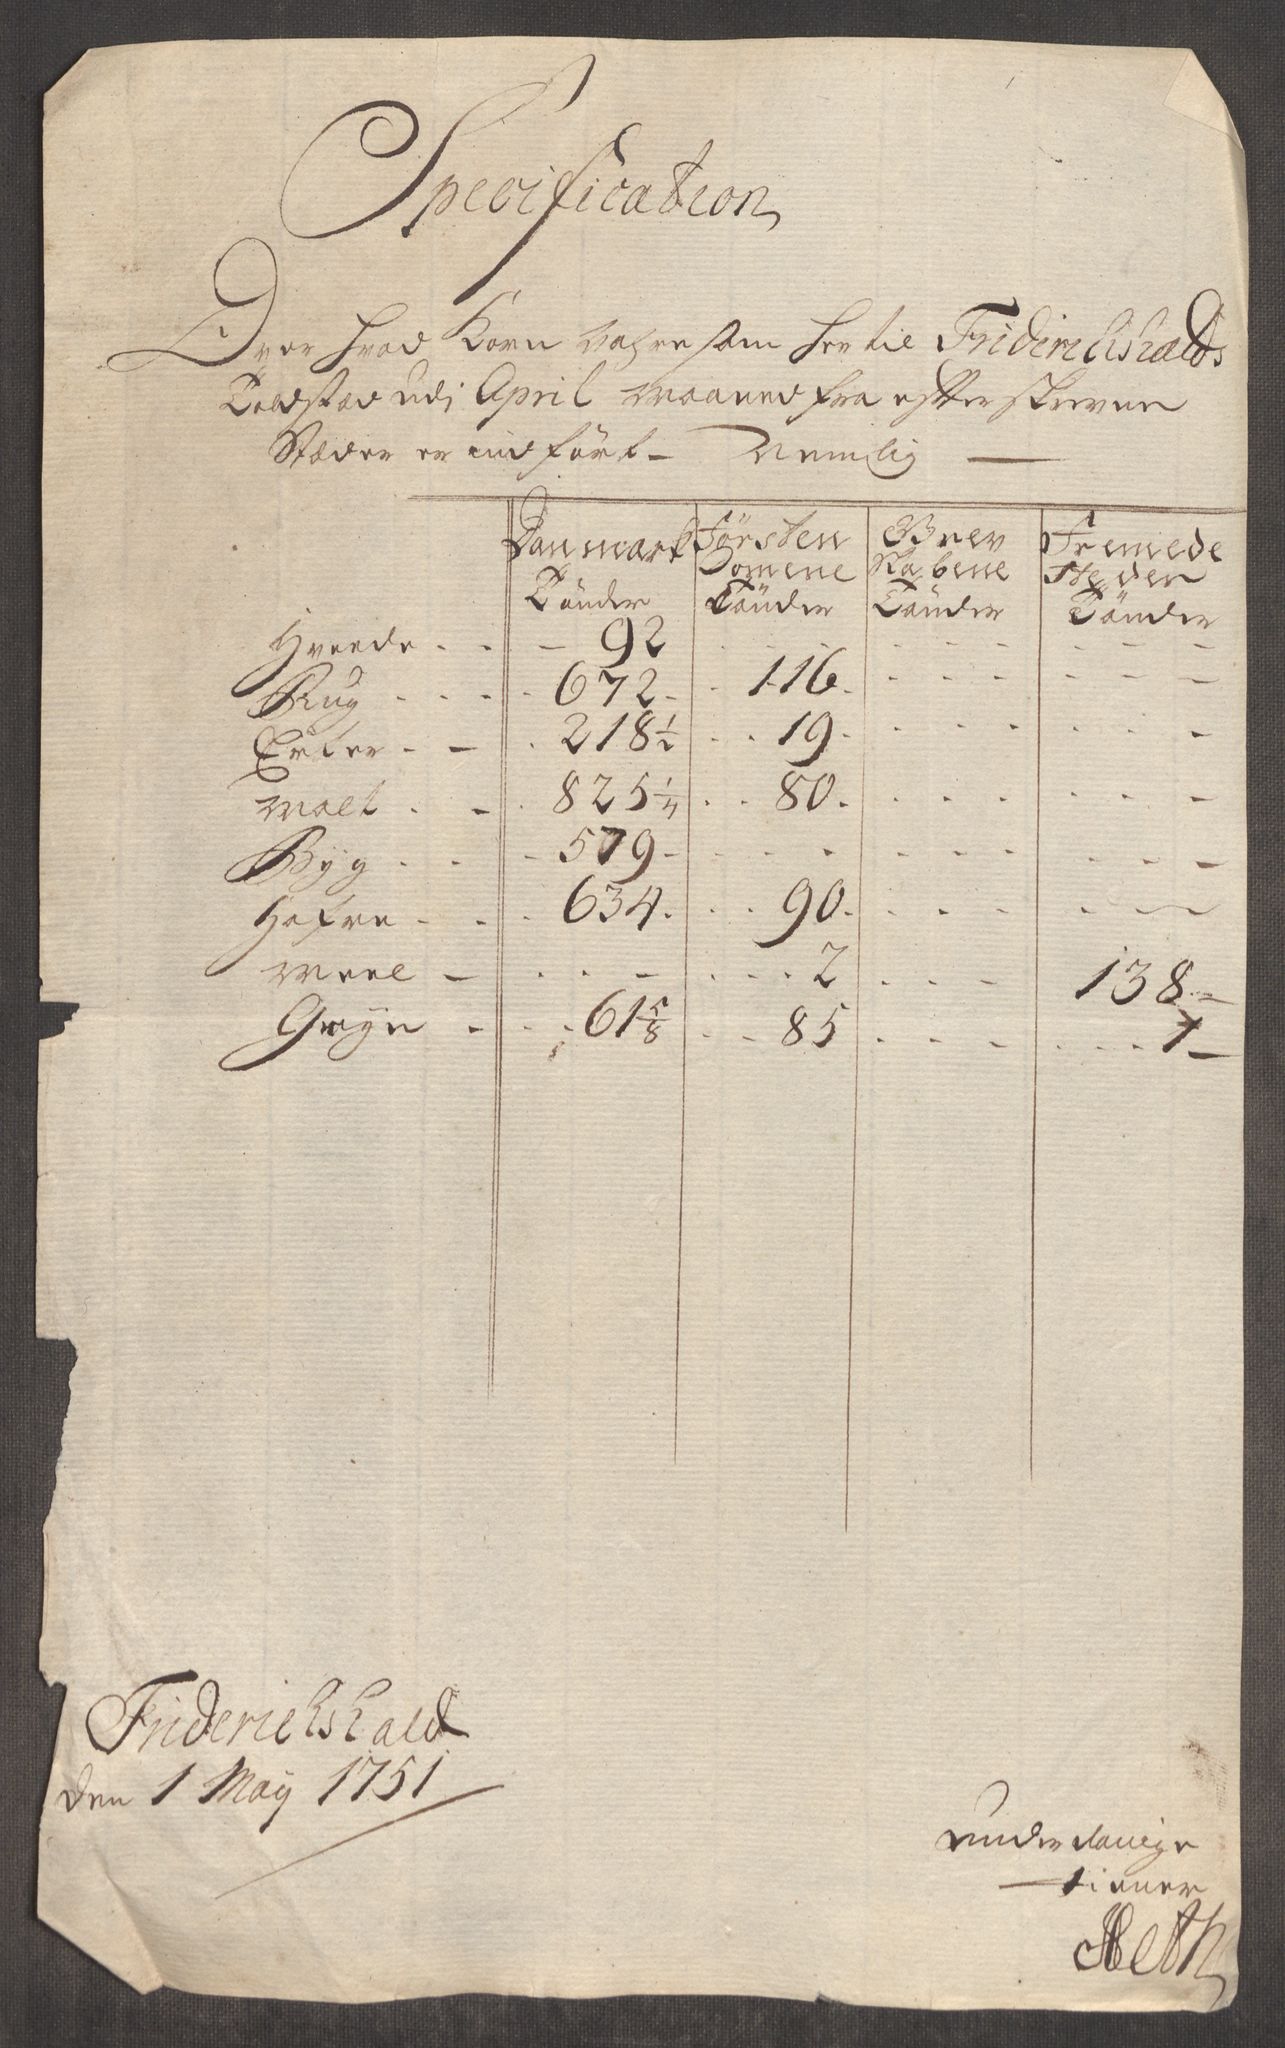 Specification
Over hvad Korn Vahre som her til Friderichshalds
Toldstad udi April Maaned fra efterskrevne
Stæder er indført - Nemlig
Danmark Försten Grev Fremede
Domene Skabene Stæder
Tönder Tönder Tönder Tönder
Hvede . . - 92 . . . . . . - - -
Rug . . . . 672 - . 116 . - - - - - -
Erter - - . 218 1/2 . . 19 . - - - . . -
Malt . - . 825 1/4 . . 80 . - - - . . -
Byg . . - 579 - - - - - - - . . . -
Hafre . . . 634 . . . 90 . - - - - - -
Meel - . . - . . . . 2 . . - 138 -
Gryn . . . 61 5/8 . . 85 . . . . . . . 1 -
Friderichshald
den 1 May 1751
underdanige
tiener